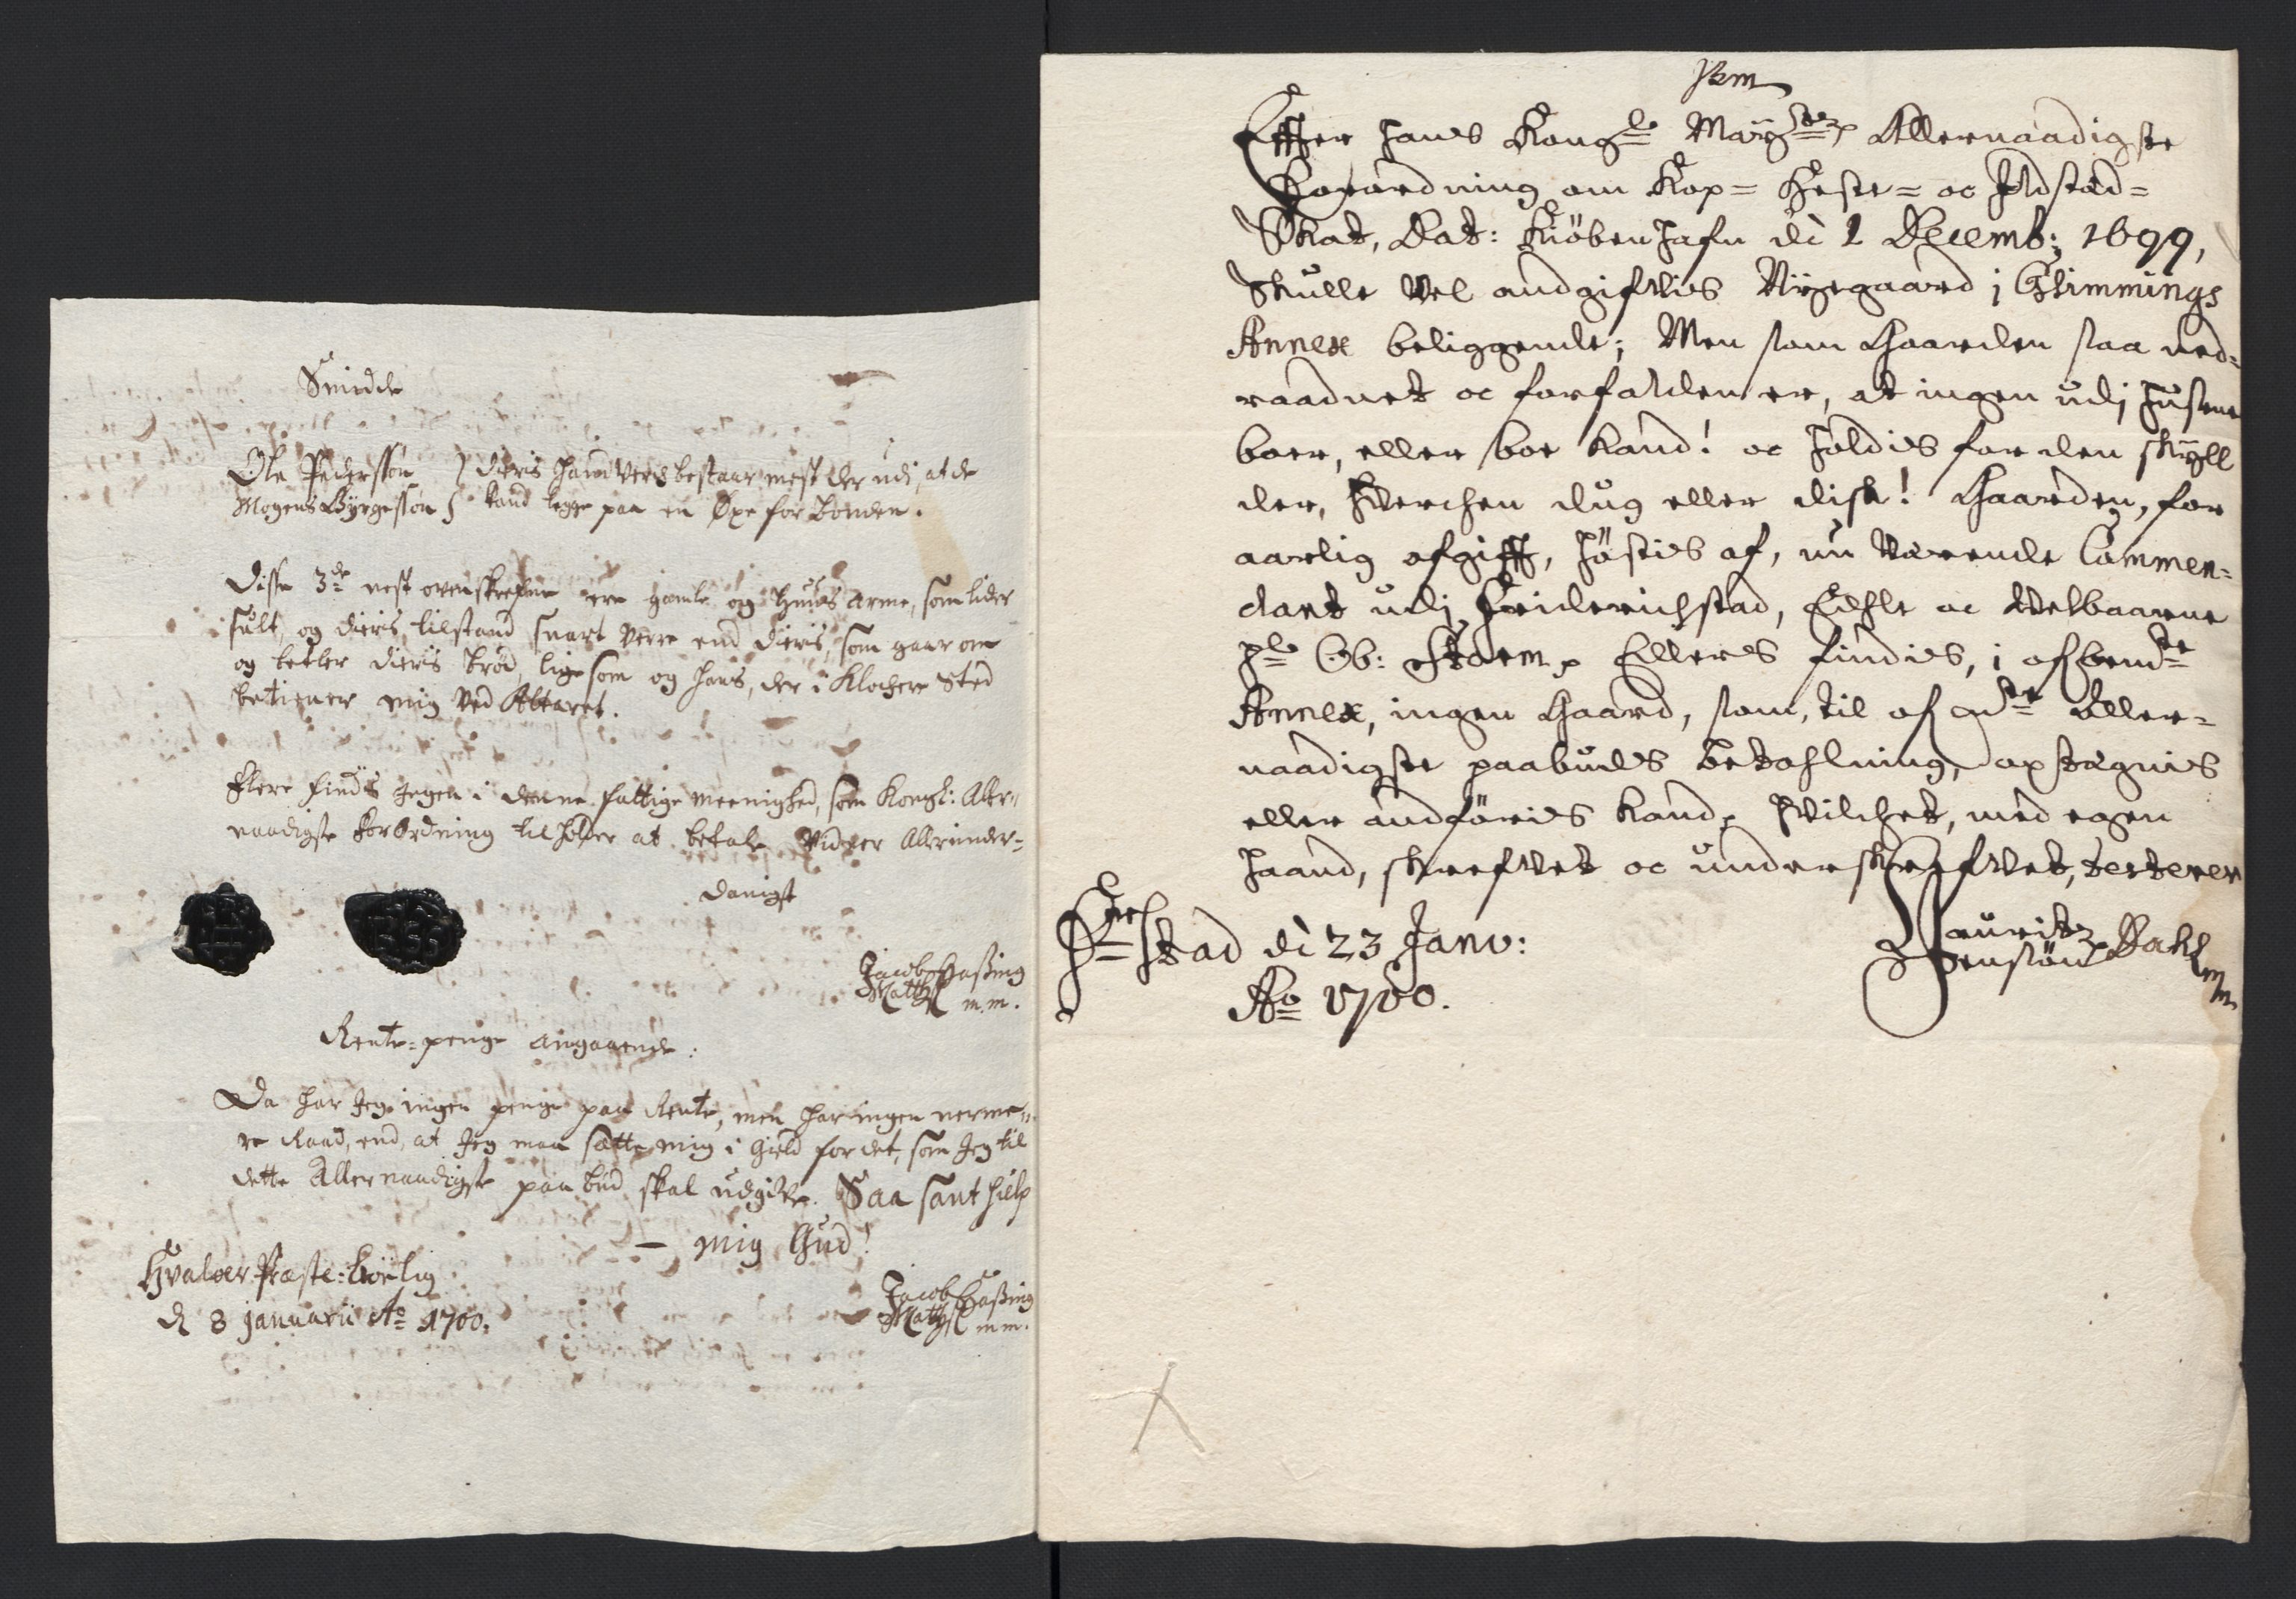 Smidde
Ole Pederssøn } dieris handverk bestaar mest der udi, at de
Mogens Byrgessøn } kand legge paa en Øxe for Bonden.
Disse 3de nest ovenskrefne ere gamle og Huus Arme, som lider
sult, og dieris tilstand snart verre end dieris, som gaar om
og betler dieris brød, ligesom og hans, der i Klocher sted
betiener mig ved Alteret.
Flere findis ingen i denne fattige meenighed, som Kongl: Aller-
naadigste forordning tilholder at betale. Vidner Allerunder-
danigst
Jacob Hassing
Matthss m.m.
Rente-penge angaaende:
Da har Jeg ingen penge paa Rente, men har ingen nerme-
re Raad, end, at Jeg maa sætte mig i gield for det, som Jeg til
dette Allernaadigste paabud skal udgifve. Saa sant hielp
mig Gud!
Hvaløer Præste-boelig
d 8 januarii Ao 1700.
Jacob Hassing
Matthss mm.
Effter Hans Kongl Mayts Allernaadigste
Forordning om Kop= Heste= oc Ildsted=
Skat, Dat: Kiöbenhafn di 1 Decemb: 1699,
skulle vel andgifvis Nygegaard i Glimmings
Annex beliggende; Men som Gaarden saa ned-
raadnet oc forfalden er, at ingen udj husene
boer, eller boe kand! oc holdis for den skyll
der, hverchen dug eller disk! Gaarden, for
aarlig afgifft, höstis af, nu værende Commen-
dant udj Friderichstad, Edle oc Velbaarne
Hl Ob: Storm. Ellers findis, i ofbemte
Annex, ingen Gaard, som, til ofmte Aller-
naadigste paabuds betahlning, optegnis
eller andföris kand. Hvilchet, med egen
haand, skrefvet oc underskrefvet, testerer
Frstad di 23 Janv:
Ao 1700.
Lauritz
Jensöen Dahl
mm